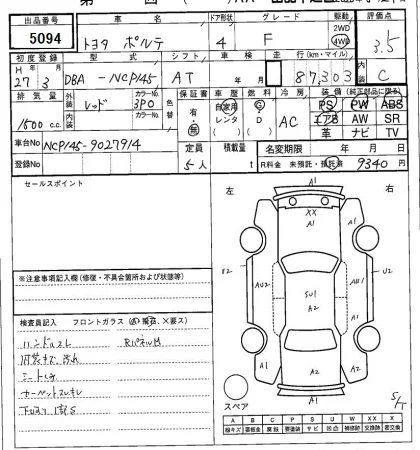 出品番号 車名 ドア形状 グレード 駆動 評価点
5094 トヨタ ポルテ 4 F 2WD 4WD 3.5
初度登録 型式 シフト 車検 走行(km・マイル) 内装
H 27 年 3 月 DBA-NCP145 AT 年 月 87,303 C
排気量 外装色 カラーNo. 内装色 カラーNo. 色替 保証書 車歴 燃料 冷房 装備(純正部品に限る)
1500 c.c. レッド 3P0 有・無 自家用 レンタ G D AC PS PW ABS
エアB AW SR
革 ナビ TV
車台No. NCP145-9027914 定員 積載量 名変期限 年 月
登録No. 5人 t R料金 未預託・預託済 9340 円
セールスポイント
左 右
A1
XX
A1
A1 A1
U2 AU2 SU1 A2 U2
A1
A2 A2
A2
A2
スペア
※注意事項記入欄(修復・不具合箇所および状態等)
検査員記入 フロントガラス(A、飛石、X要ス)
ハンドルスレ RパネルM
内装キズ、汚れ
シートシミ
カーペットスレキレ
下回り錆S
S/T
A B C P S U W X XX X
線キズ 要板金 腐蝕 要塗装 サビ 凹凸 補修跡 交換跡 要交換